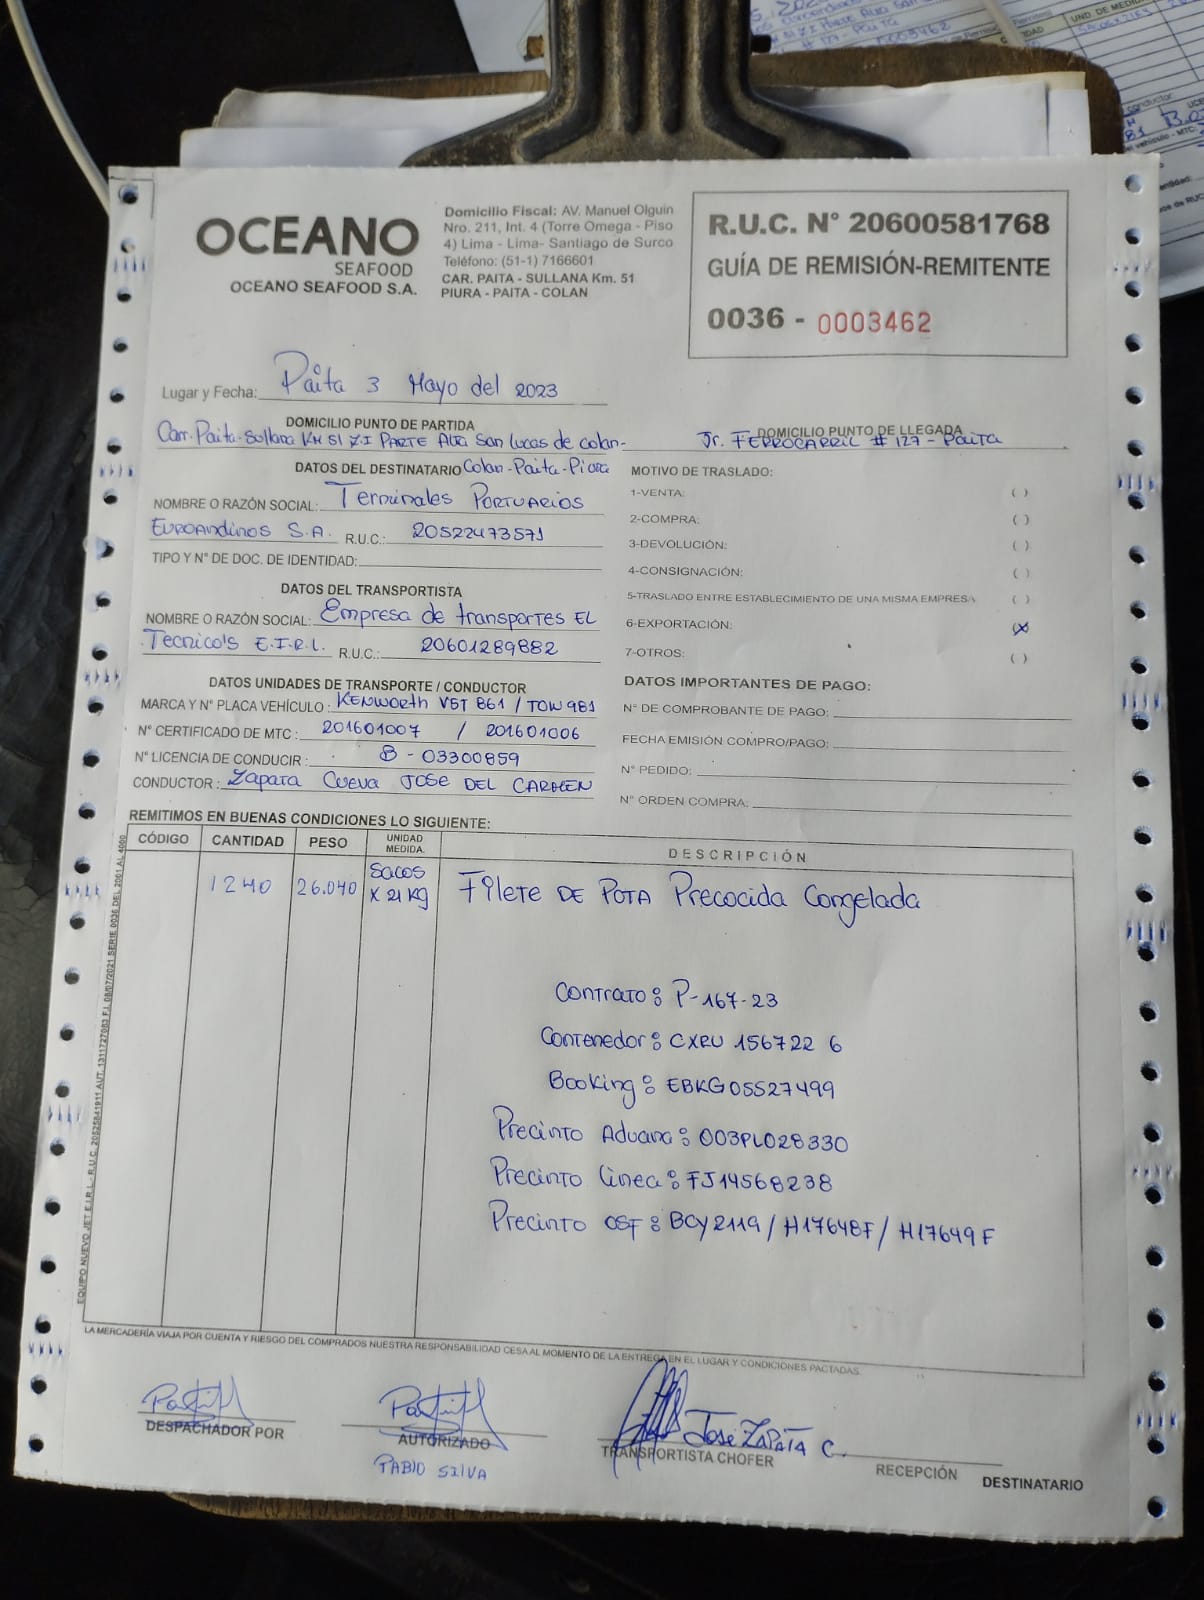 OCEANO
SEAFOOD
OCEANO SEAFOOD S.A.
Domicilio Fiscal: AV. Manuel Olguin
Nro. 211, Int. 4 (Torre Omega - Piso
4) Lima - Lima- Santiago de Surco
Teléfono: (51-1) 7166601
CAR. PAITA - SULLANA Km. 51
PIURA - PAITA - COLAN
R.U.C. N° 20600581768
GUÍA DE REMISIÓN-REMITENTE
0036 - 0003462
Lugar y Fecha: Paita 3 Mayo del 2023
DOMICILIO PUNTO DE PARTIDA
Carr. Paita-Sullana KM 51 Z.I PARTE Alta San Lucas de colan-
Colan-Paita-Piura
DOMICILIO PUNTO DE LLEGADA
Jr. FERROCARRIL # 127 - PAITA
DATOS DEL DESTINATARIO
NOMBRE O RAZÓN SOCIAL: Terminales PORTUARIOS
EUROANDINOS S.A. R.U.C.: 20522473571
TIPO Y N° DE DOC. DE IDENTIDAD:
DATOS DEL TRANSPORTISTA
NOMBRE O RAZÓN SOCIAL: Empresa de transportes EL
Tecnico's E.I.R.L. R.U.C.: 20601289882
DATOS UNIDADES DE TRANSPORTE / CONDUCTOR
MARCA Y N° PLACA VEHÍCULO : KENWORTH V5T 861 / TOW 981
N° CERTIFICADO DE MTC : 201601007 / 201601006
N° LICENCIA DE CONDUCIR : B - 03300859
CONDUCTOR : Zapata Cueva JOSE DEL CARMEN
MOTIVO DE TRASLADO:
1-VENTA: ( )
2-COMPRA: ( )
3-DEVOLUCIÓN: ( )
4-CONSIGNACIÓN: ( )
5-TRASLADO ENTRE ESTABLECIMIENTO DE UNA MISMA EMPRESA ( )
6-EXPORTACIÓN: (X)
7-OTROS: ( )
DATOS IMPORTANTES DE PAGO:
N° DE COMPROBANTE DE PAGO:
FECHA EMISIÓN COMPRO/PAGO:
N° PEDIDO:
N° ORDEN COMPRA:
REMITIMOS EN BUENAS CONDICIONES LO SIGUIENTE:
CÓDIGO CANTIDAD PESO UNIDAD MEDIDA. DESCRIPCIÓN
1240 26.040 Sacos X 21 Kg Filete DE POTA Precocida Congelada
Contrato: P-167-23
Contenedor: CXRU 156722 6
Booking: EBKG05527499
Precinto Aduana: 003PL028330
Precinto Linea: FJ14568238
Precinto OSF: BCY2119 / H17648F / H17649F
EQUIPO NUEVO JET E.I.R.L - R.U.C. 20525841911 AUT. 1311727083 F.I. 08/07/2021 SERIE 0036 DEL 2001 AL 4000
LA MERCADERÍA VIAJA POR CUENTA Y RIESGO DEL COMPRADOS NUESTRA RESPONSABILIDAD CESA AL MOMENTO DE LA ENTREGA EN EL LUGAR Y CONDICIONES PACTADAS
DESPACHADOR POR
AUTORIZADO
PABLO SILVA
JOSE ZAPATA C.
TRANSPORTISTA CHOFER
RECEPCIÓN DESTINATARIO